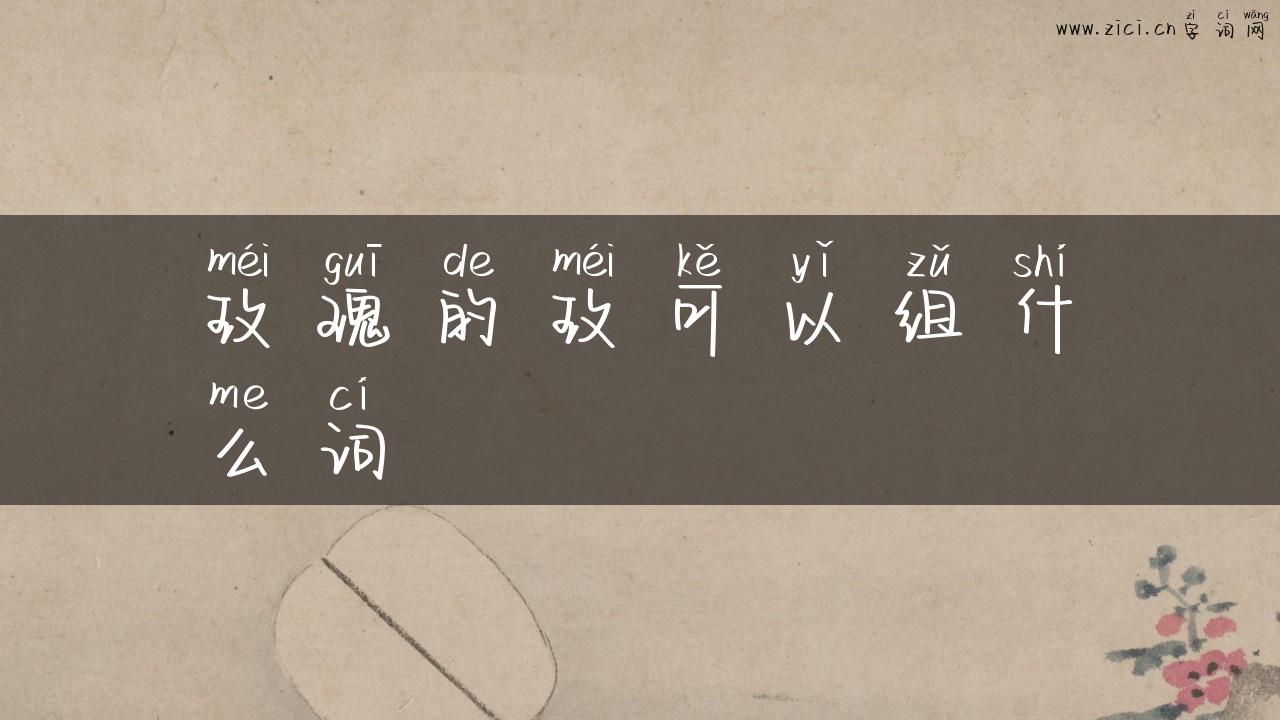 zì cí wǎng
www.zici.cn 字词网
méi guī de méi kě yǐ zǔ shí
玫瑰的玫可以组什
me cí
么词